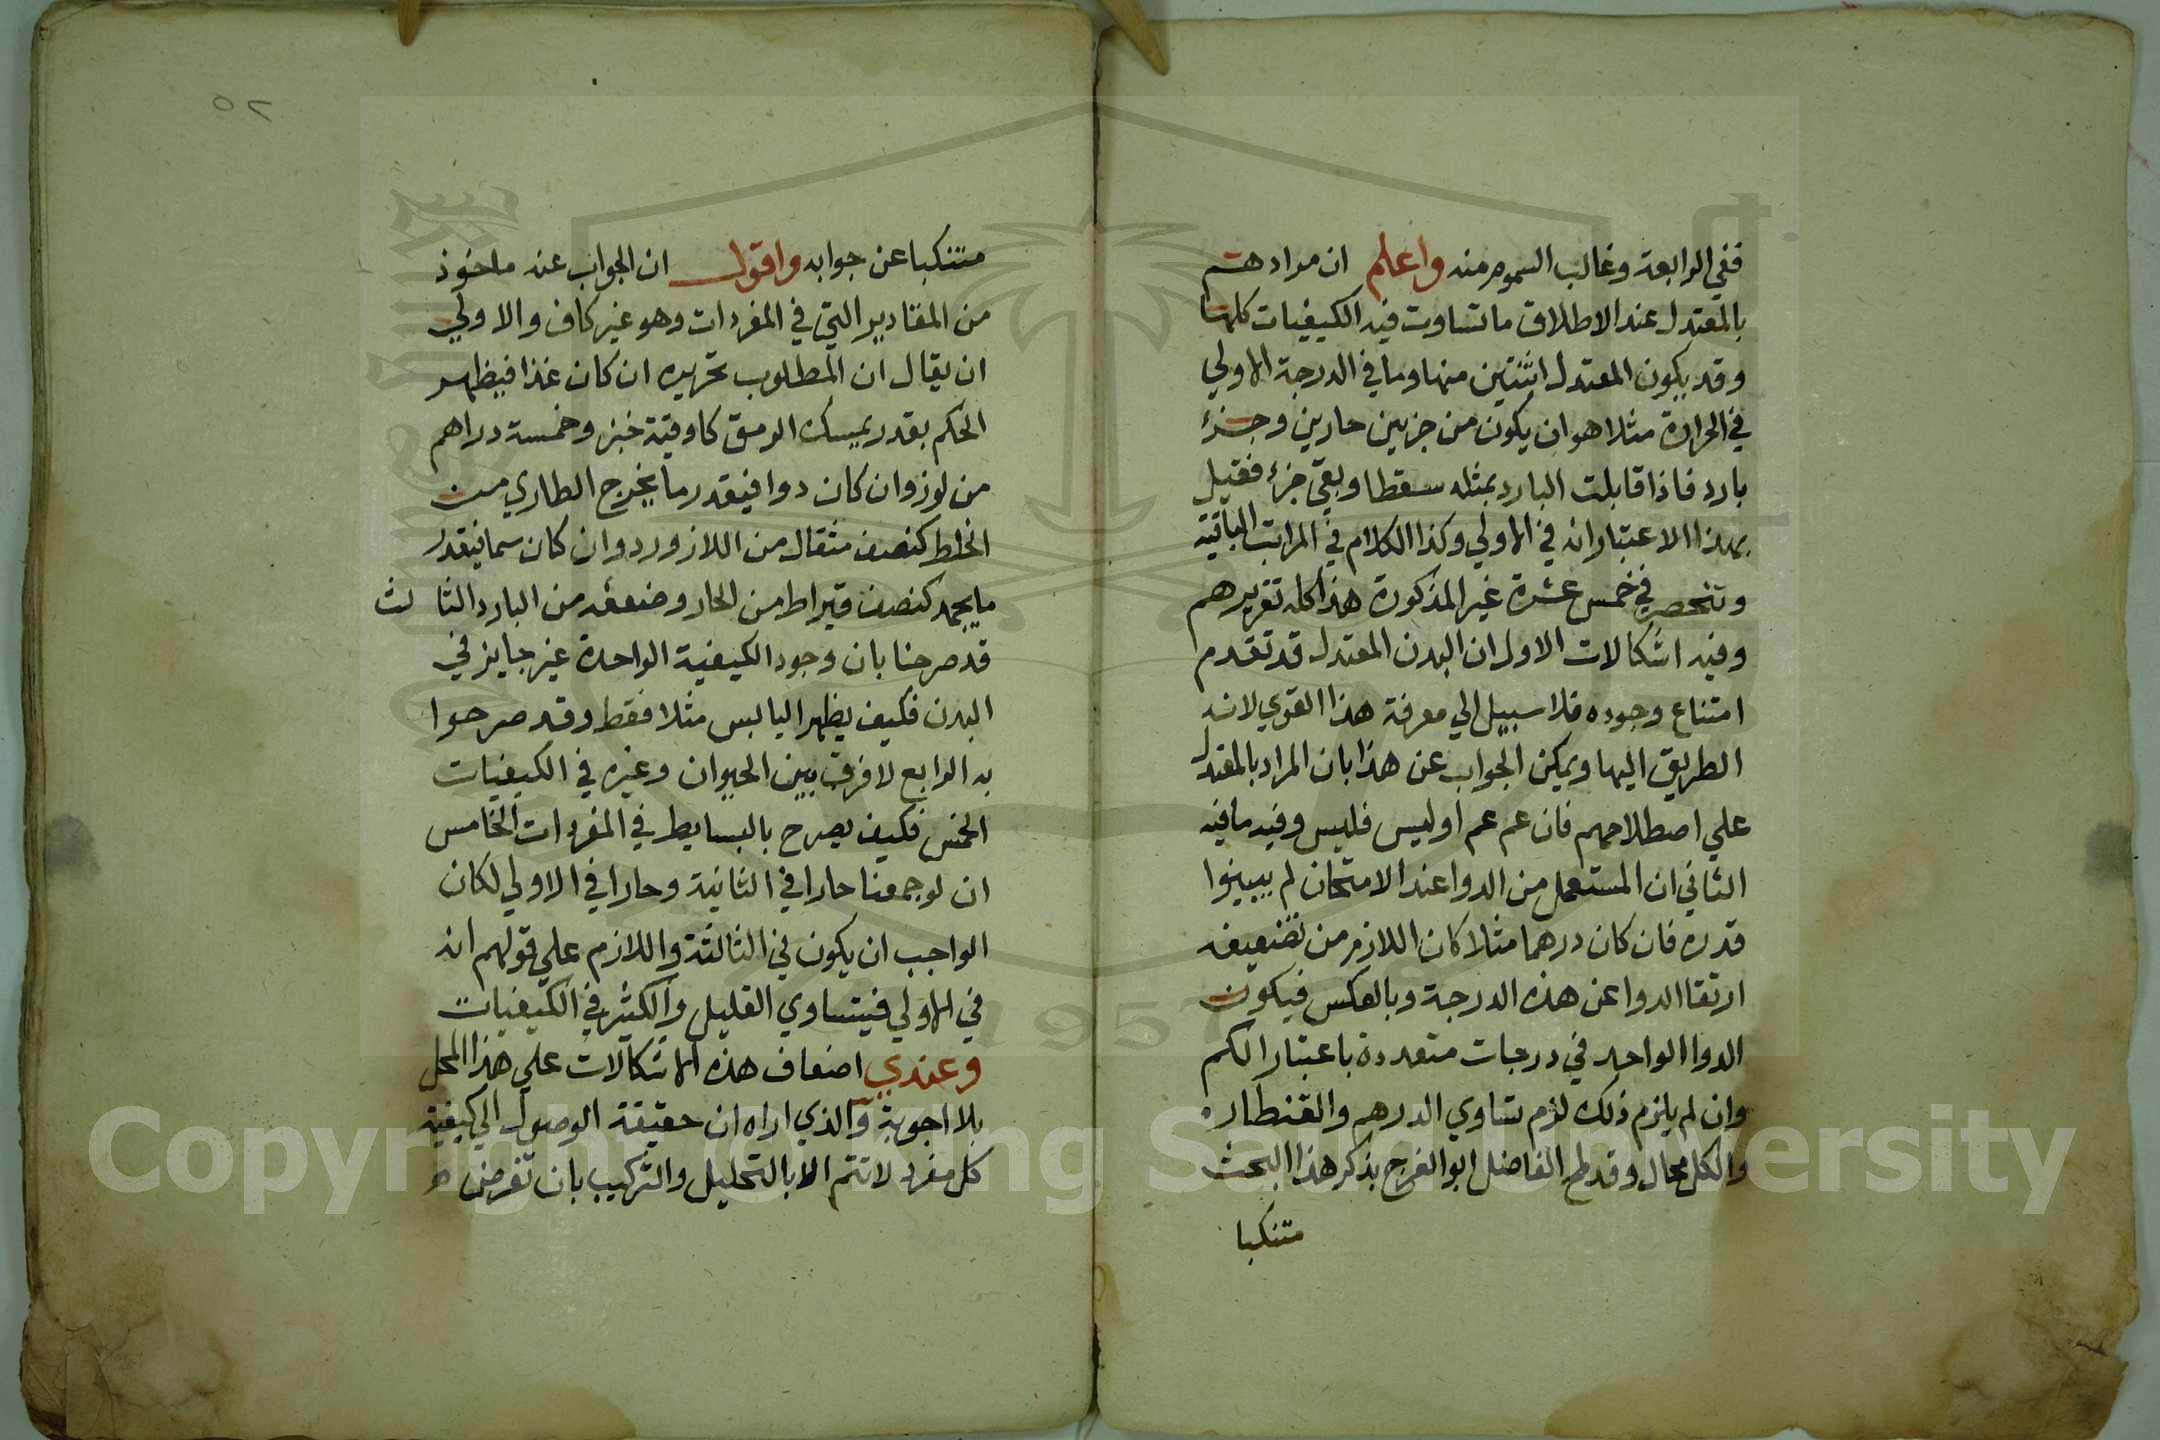 ففي الرابعة وغالب السموم منه واعلم ان مرادهم
بالمعتدل عند الاطلاق ما تساوت فيه الكيفيات كلها
وقد يكون المعتدل اثنتين منها وما في الدرجة الاولي
في الحرارة مثلا هو ان يكون من جزيين حارين وجزء
بارد فاذا قابلت البارد بمثله سقطا وبقي جزء فقيل
بهذا الاعتبار انه في الاولي وكذا الكلام في المراتب الباقية
وتنحصر في خمس عشرة غير المذكورة هذا كله تقريرهم
وفيه اشكالات الاول ان البدن المعتدل قد تقدم
امتناع وجوده فلا سبيل الي معرفة هذا القوي لانه
الطريق اليها ويمكن الجواب عن هذا بان المراد بالمعتدل
علي اصطلاحهم فان عم عم اوليس فليس وفيه مافيه
الثاني ان المستعمل من الدوا عند الامتحان لم يبينوا
قدره فان كان درهما مثلا كان اللازم من تضعيفه
ارتقا الدوا عن هذه الدرجة وبالعكس فيكون
الدوا الواحد في درجات متعددة باعتبار الكم
وان لم يلزم ذلك لزم تساوي الدرهم والقنطار
والكل محال وقد طم الفاضل ابو الفرج بذكر هذا البحث
متنكبا
٥٢
متنكبا عن جوابه واقول ان الجواب عنه ماخوذ
من المقادير التي في المفردات وهو غير كاف والاولي
ان يقال ان المطلوب تحريره ان كان غذا فيظهر
الحكم بقدر يمسك الرمق كاوقية خبز وخمسة دراهم
من لوز وان كان دوا فيقدر ما يخرج الطاري من
الخلط كنصف مثقال من اللازورد وان كان سما فبقدر
ما يجمد كنصف قيراط من الحار وضعفه من البارد الثالث
قد صرحنا بان وجود الكيفية الواحدة غير جايز في
البدن فكيف يظهر اليابس مثلا فقط وقد صرحوا
به الرابع لا فرق بين الحيوان وغيره في الكيفيات
الخمس فكيف يصرح بالبسايط في المفردات الخامس
ان لو جمعنا حارا في الثانية وحارا في الاولي لكان
الواجب ان يكون في الثالثة واللازم علي قولهم انه
في الاولي فيتساوي القليل والكثير في الكيفيات
وعندي اضعاف هذه الاشكالات علي هذا المحل
بلا اجوبة والذي اراه ان حقيقة الوصول الي كيفية
كل مفرد لا تتم الا بالتحليل والتركيب بان تفرض
1957
Copyright © King Saud University